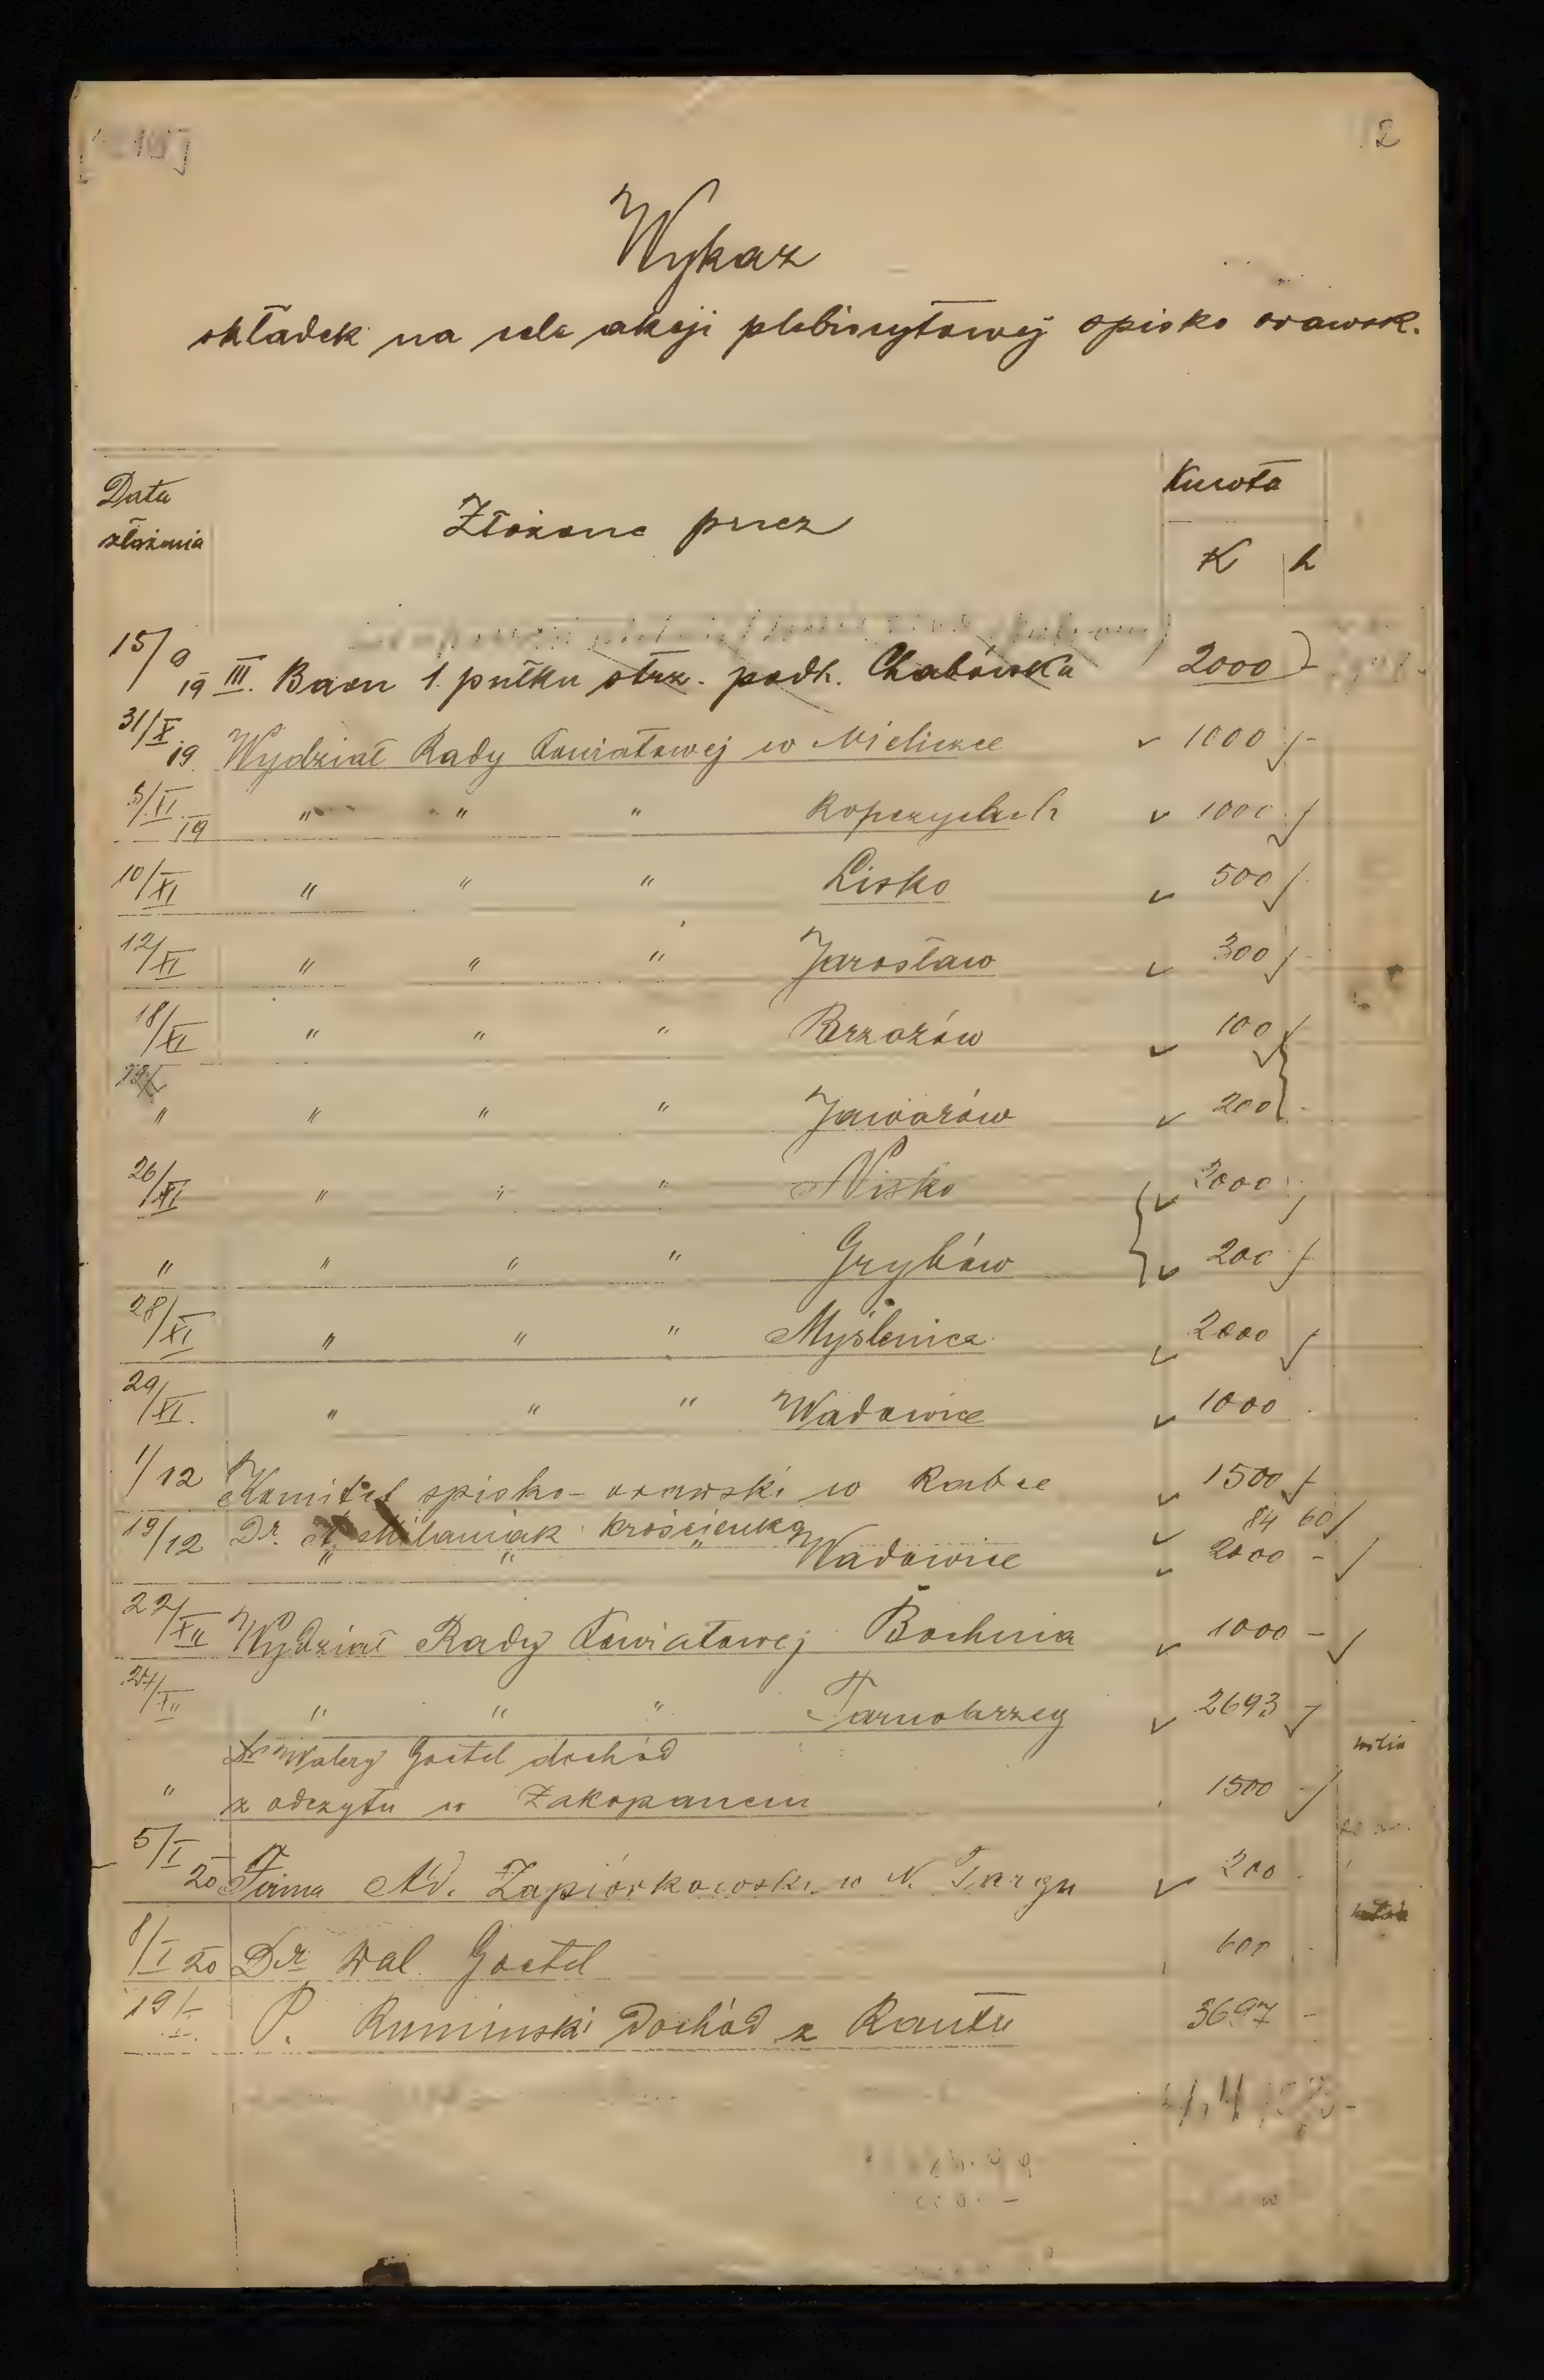 2
Wykaz
składek na cele akcji plebiscytowej spisko orawsk.
Data złożenia
Złożone przez
Kwota
K h
15/9 19 III. Baon 1. pułku strz. podh. Chabówka 2000 -
31/X 19 Wydział Rady Powiatowej w Wieliczce 1000 -
5/XI 19 " " " Ropczycach 1000
10/XI " " " Lisko 500
12/XI " " " Jarosław 300 -
18/XI " " " Brzozów 100
" " " " Jaworów 200 -
26/XI " " " Nisko 2000
" " " " Grybów 200
28/XI " " " Myślenice 2000
29/XI. " " " Wadowice 1000
1/12 Komitet spisko-orawski w Rabce 1500
19/12 Dr. Milaniak Krościenko 84 60
" " " Wadowice 2000 -
22/XII Wydział Rady Powiatowej Bochnia 1000 -
24/XII " " " Tarnobrzeg 2693 -
Dr Walery Goetel dochód
" z odczytu w Zakopanem 1500 -
5/I 20 Firma Ad. Zapiórkowski w N. Targu 200 -
8/I 20 Dr Wal. Goetel 600
19/I P. Rumiński Dochód z Rautu 3697 -